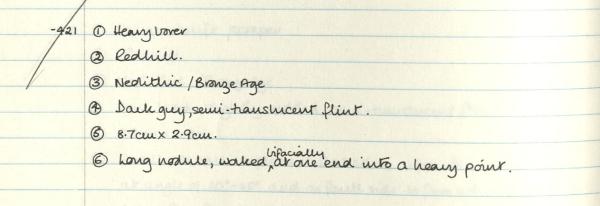 -421 ① Heavy borer
② Redhill.
③ Neolithic / Bronze Age
④ Dark grey, semi-translucent flint.
⑤ 8.7cm x 2.9cm.
⑥ Long nodule, worked, bifacially at one end into a heavy point.